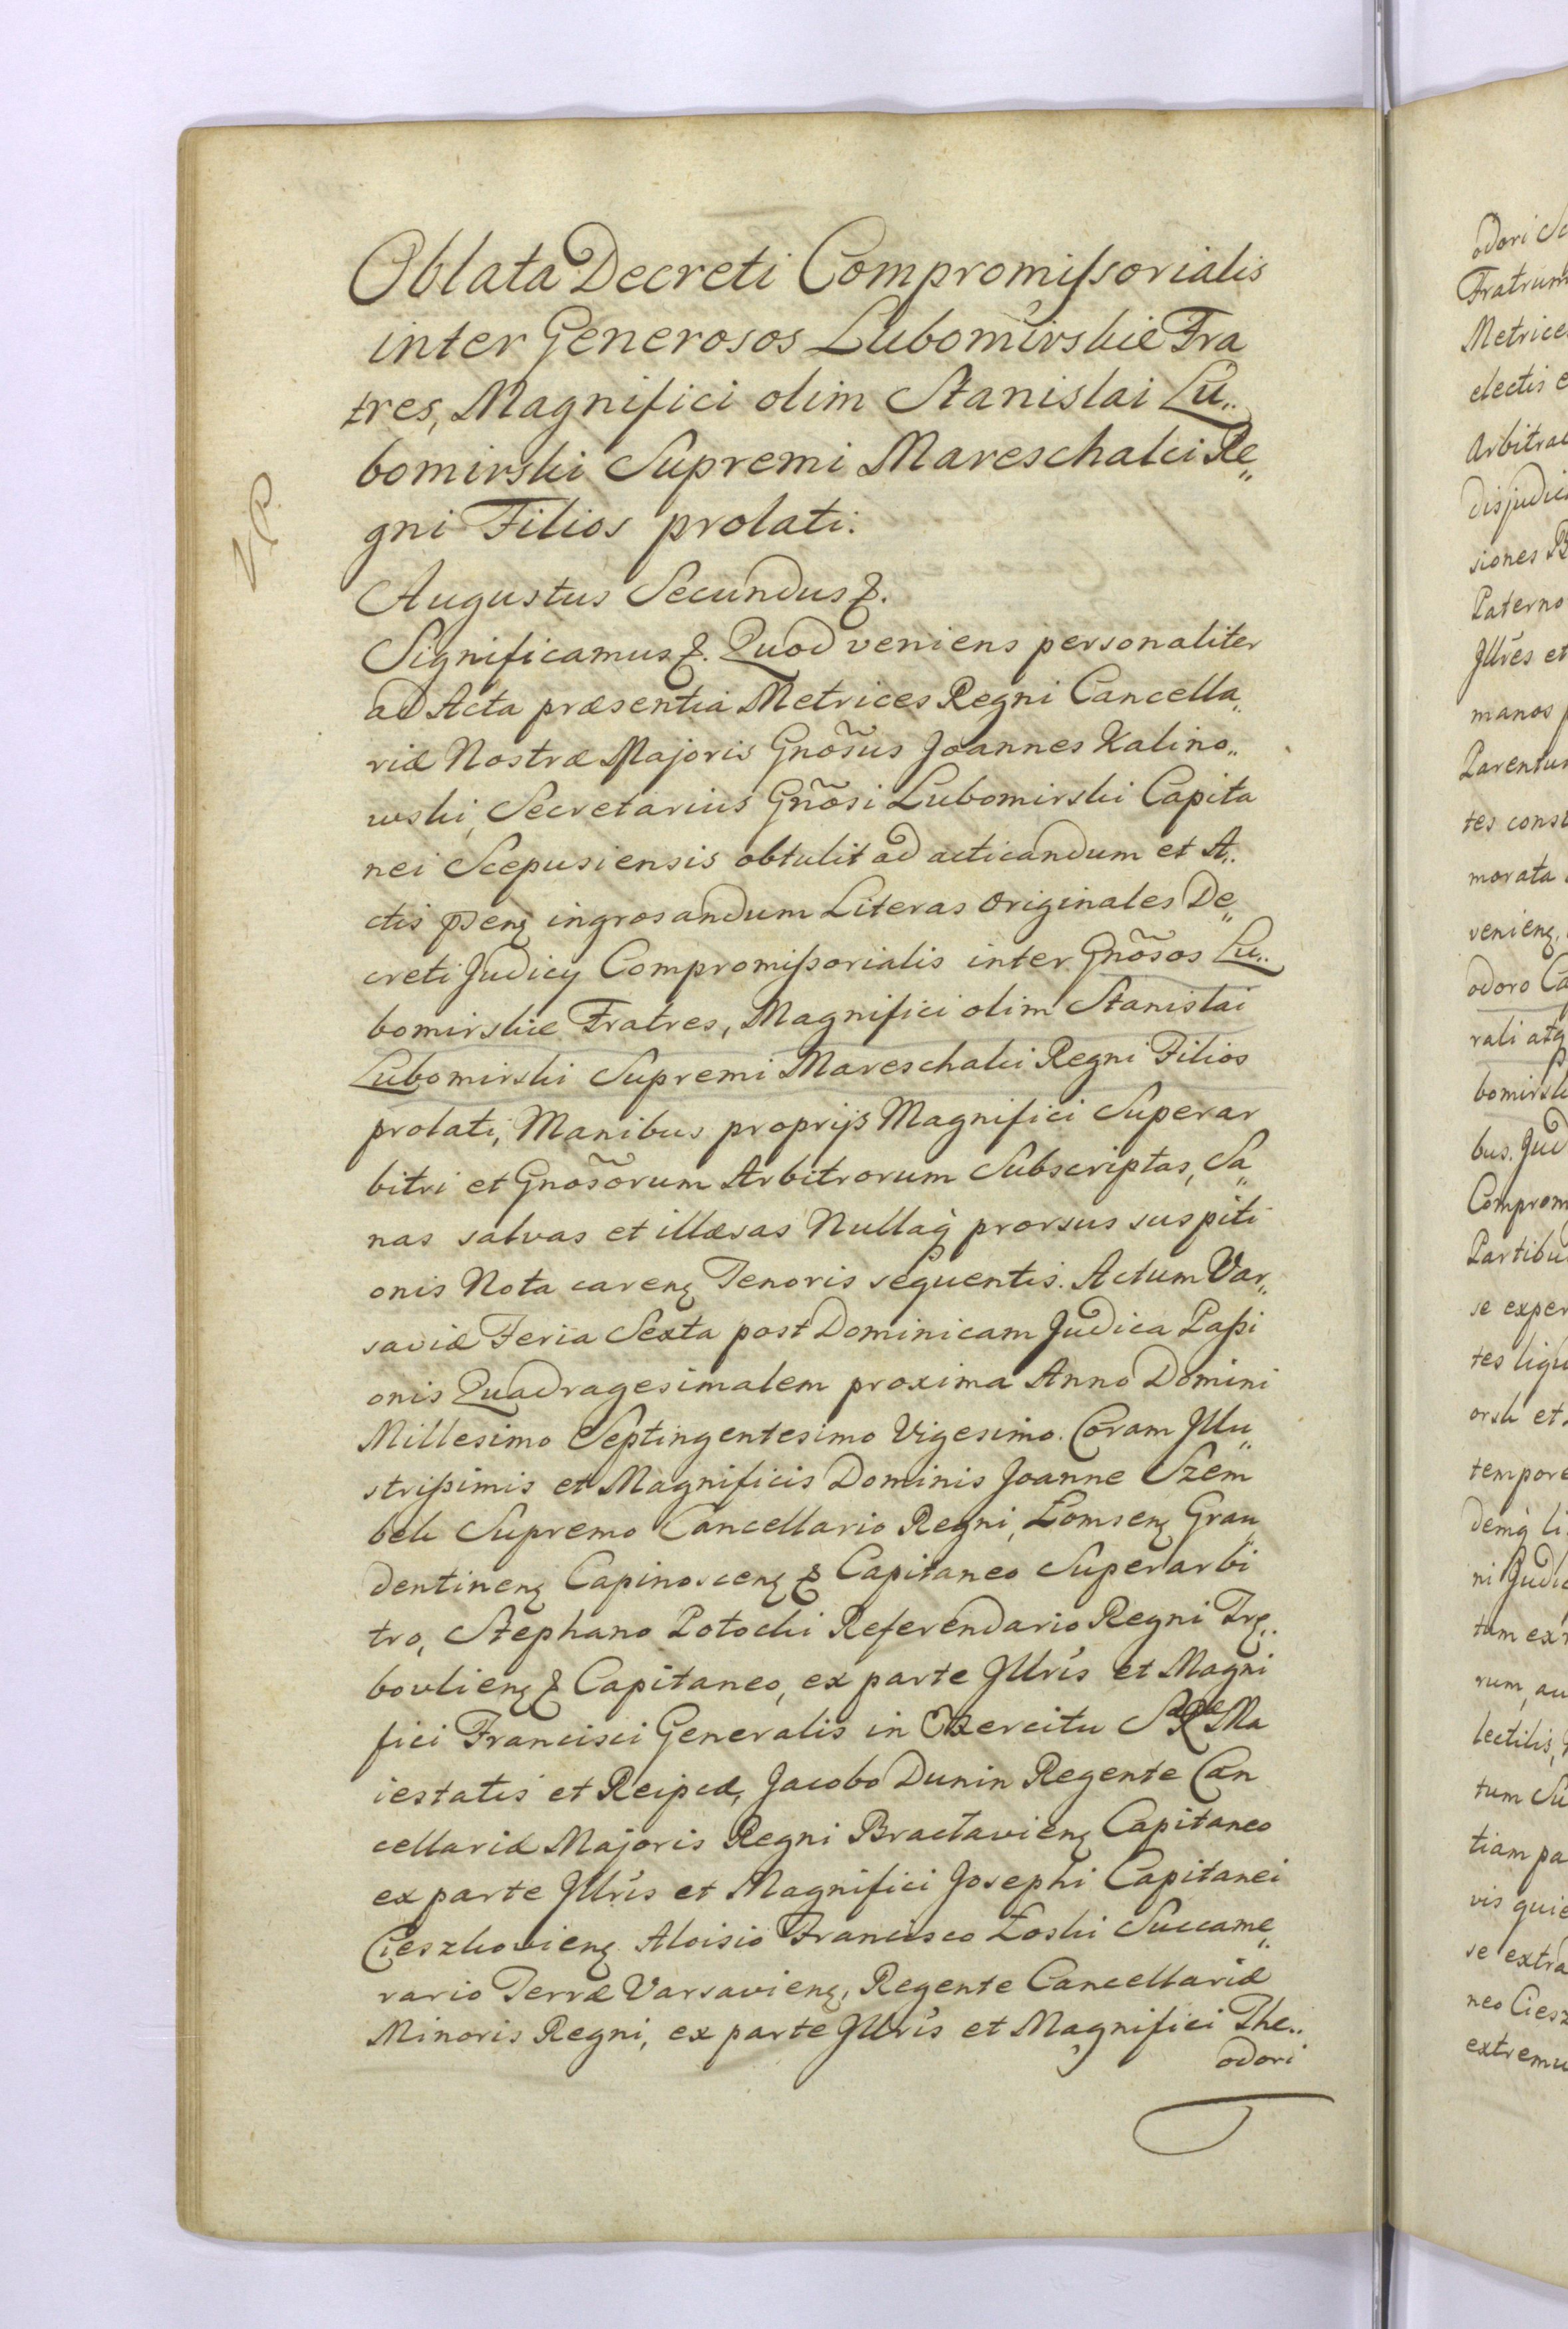 Oblata Decreti Compromiſsorialis
inter Generosos Lubomirskie Fra
tres, Magnifici olim Stanislai Lu„
bomirski Supremi Mareschalci Re„
gni Filios prolati.
V.P.
Augustus Secundus &.
Significamus &. Quod veniens personaliter
ad Acta præsentia Metrices Regni Cancella„
riæ Nostræ Majoris Gnõsus Joannes Kalino„
wski, Secretarius Gnõsi Lubomirski Capita
nei Scepusiensis obtulit ad acticandum et A„
ctis pñsenꝫ ingrosandum Literas Originales De„
creti Judicij Compromiſsorialis inter Gnõsos Lu„
bomirskie Fratres, Magnifici olim Stanislai
Lubomirski Supremi Mareschalci Regni Filios
prolati, Manibus proprijs Magnifici Superar
bitri et Gnõsorum Arbitrorum Subscriptas, Sa„
nas salvas et illæsas Nullaq́ prorsus suspiti
onis Nota carenꝫ Tenoris sequentis. Actum Var„
saviæ Feria Sexta post Dominicam Judica Paſsi
onis Quadragesimalem proxima Anno Domini
Millesimo Septingentesimo Vigesimo. Coram Jllu„
striſsimis et Magnificis Dominis Joanne Szem
bek Supremo Cancellario Regni, Łomsenꝫ Grau„
dentinenꝫ Capinoscenꝫ & Capitaneo Superarbi
tro, Stephano Potocki Referendario Regni Trę„
bovlienꝫ & Capitaneo, ex parte Jllris et Magni
fici Francisci Generalis in Exercitu Sæ Ræ Ma
iestatis et Reipcæ, Jacobo Dunin Regente Can
cellariæ Majoris Regni Bractavienꝫ Capitaneo
ex parte Jllris et Magnifici Josephi Capitanei
Cieszkovienꝫ Aloisio Francisco Łoski Succame„
rario Terræ Varsavienꝫ, Regente Cancellariæ
Minoris Regni, ex parte Jllris et Magnifici The„
odori
odori
Fratrum
Metrice
electis
Arbitra
disjudi
siones
Paterno
Jllres et
manos
Parentu
tes cons
morata
venienꝫ
odoro Ca
rali atq
bomirsk
bus. Jud
Comprom
Partibu
se exper
tes
et
tempore
demq́ li
ni Judic
tum ex
rum, au
lectilis,
tum Su
tiam pa
vis quie
se extra
neo Ciesz
extremu